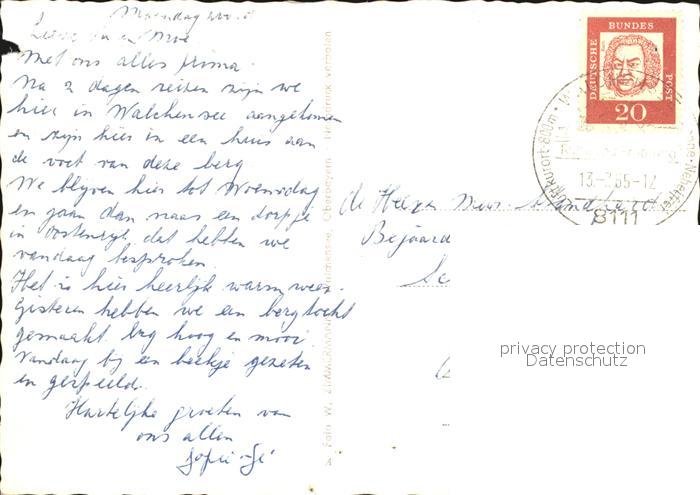 Maandag
Lieve Va en Moe
Met ons alles prima.
Na 2 dagen reizen zijn we
hier in Walchensee aangekomen
en zijn hier in een huis aan
de voet van deze berg
We blijven hier tot Woensdag
en gaan dan naar een dorpje
in Oostenrijk dat hebben we
vandaag besproken.
Het is hier heerlijk warm weer.
Gisteren hebben we een bergtocht
gemaakt. erg hoog en mooi.
Vandaag bij een beekje gezeten
en gespeeld.
Hartelijke groeten van
ons allen
de Heer en Mevr.
Bejaard
Foto W. ZIMMERMANN Oberbayern. Nachdruck verboten
DEUTSCHE
BUNDES
POST
20
kurort · 800m ·
65-12
8111
privacy protection
Datenschutz